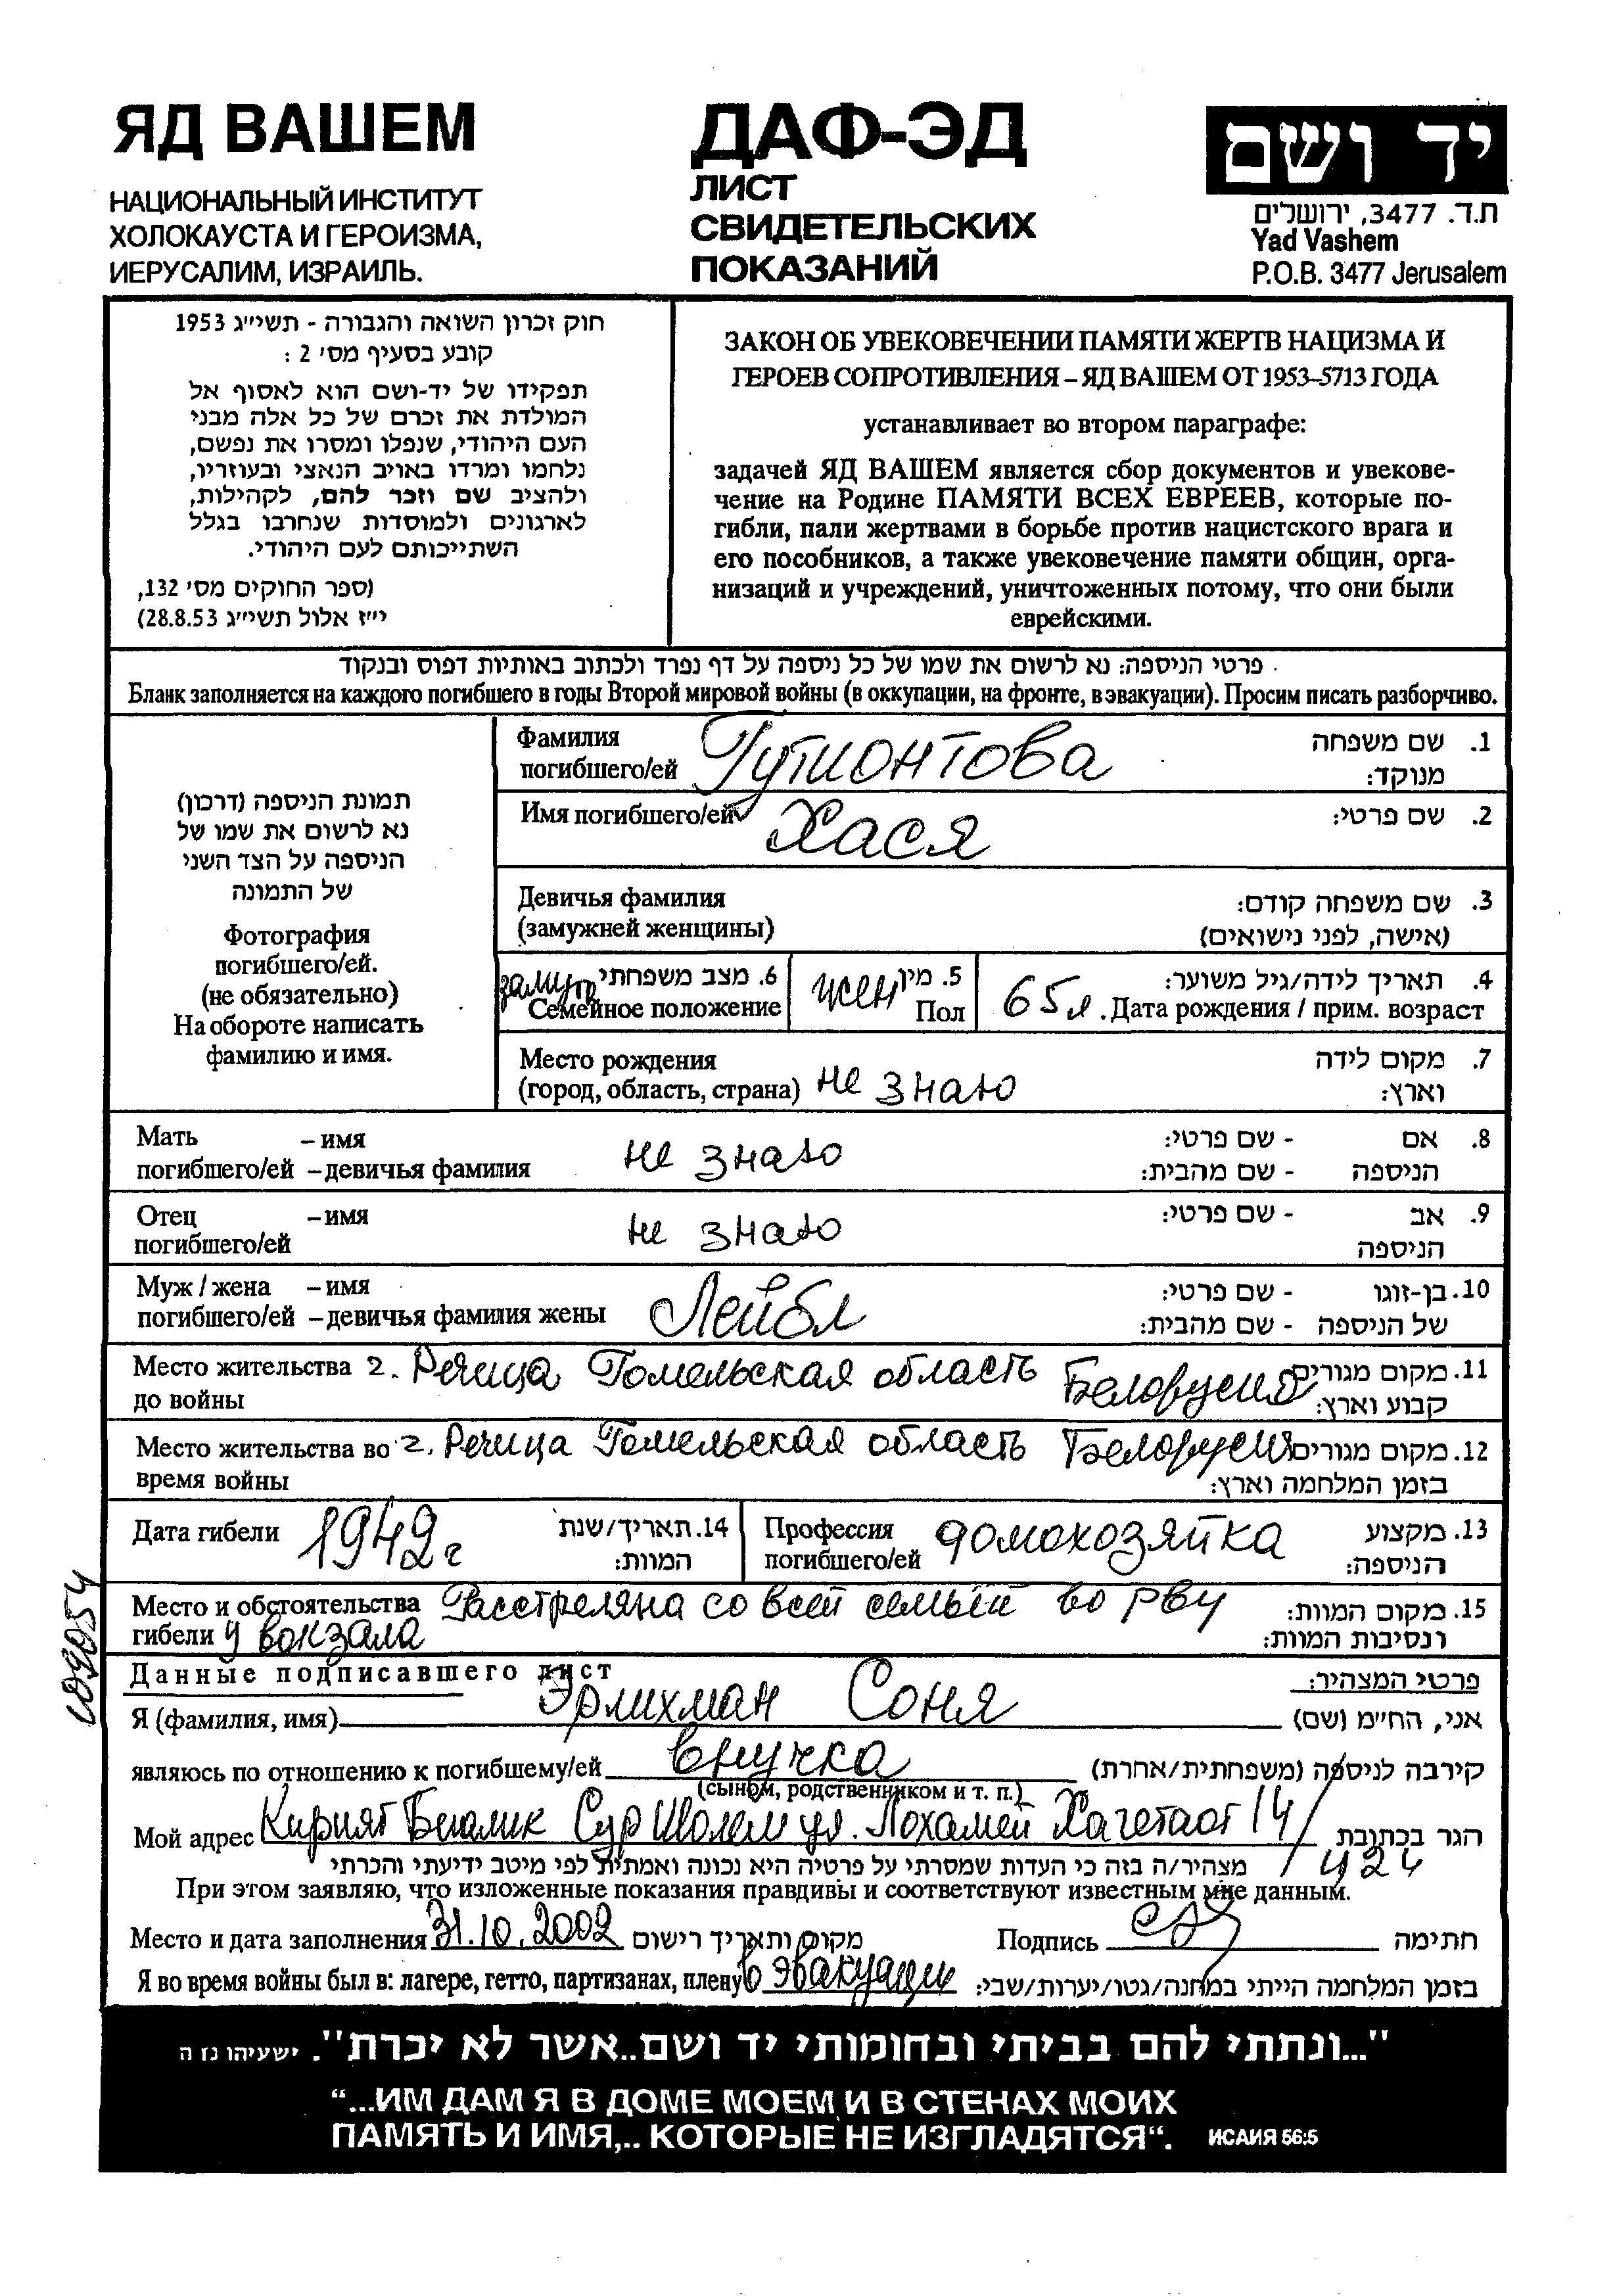 ЯД ВАШЕМ
НАЦИОНАЛЬНЫЙ ИНСТИТУТ
ХОЛОКАУСТА И ГЕРОИЗМА,
ИЕРУСАЛИМ, ИЗРАИЛЬ.
ДАФ-ЭД
ЛИСТ
СВИДЕТЕЛЬСКИХ
ПОКАЗАНИЙ
יד ושם
ת.ד. 3477, ירושלים
Yad Vashem
P.O.B. 3477 Jerusalem
חוק זכרון השואה והגבורה - תשי״ג 1953
קובע בסעיף מס׳ 2 :
תפקידו של יד-ושם הוא לאסוף אל
המולדת את זכרם של כל אלה מבני
העם היהודי, שנפלו ומסרו את נפשם,
נלחמו ומרדו באויב הנאצי ובעוזריו,
ולהציב שם וזכר להם, לקהילות,
לארגונים ולמוסדות שנחרבו בגלל
השתייכותם לעם היהודי.
(ספר החוקים מס׳ 132,
י״ז אלול תשי״ג 28.8.53)
ЗАКОН ОБ УВЕКОВЕЧЕНИИ ПАМЯТИ ЖЕРТВ НАЦИЗМА И
ГЕРОЕВ СОПРОТИВЛЕНИЯ – ЯД ВАШЕМ ОТ 1953–5713 ГОДА
устанавливает во втором параграфе:
задачей ЯД ВАШЕМ является сбор документов и увекове-
чение на Родине ПАМЯТИ ВСЕХ ЕВРЕЕВ, которые по-
гибли, пали жертвами в борьбе против нацистского врага и
его пособников, а также увековечение памяти общин, орга-
низаций и учреждений, уничтоженных потому, что они были
еврейскими.
פרטי הניספה: נא לרשום את שמו של כל ניספה על דף נפרד ולכתוב באותיות דפוס ובנקוד
Бланк заполняется на каждого погибшего в годы Второй мировой войны (в оккупации, на фронте, в эвакуации). Просим писать разборчиво.
תמונת הניספה (דרכון)
נא לרשום את שמו של
הניספה על הצד השני
של התמונה
Фотография
погибшего/ей.
(не обязательно)
На обороте написать
фамилию и имя.
Фамилия 1. שם משפחה
погибшего/ей Гутионтова מנוקד:
Имя погибшего/ей Хася 2. שם פרטי:
Девичья фамилия 3. שם משפחה קודם:
(замужней женщины) (אישה, לפני נישואים)
замуж 6. מצב משפחתי 5. מין 4. תאריך לידה/גיל משוער:
Семейное положение жен Пол 65 л. Дата рождения / прим. возраст
Место рождения 7. מקום לידה
(город, область, страна) не знаю וארץ:
Мать – имя не знаю 8. אם - שם פרטי:
погибшего/ей – девичья фамилия הניספה - שם מהבית:
Отец – имя не знаю 9. אב - שם פרטי:
погибшего/ей הניספה
Муж / жена – имя Лейбл 10. בן-זוגו - שם פרטי:
погибшего/ей – девичья фамилия жены של הניספה - שם מהבית:
Место жительства г. Речица Гомельская область Белорусия 11. מקום מגורים
до войны קבוע וארץ:
Место жительства во г. Речица Гомельская область Белорусия 12. מקום מגורים
время войны בזמן המלחמה וארץ:
Дата гибели 1942 г 14. תאריך/שנת Профессия домохозяйка 13. מקצוע
המוות: погибшего/ей הניספה:
Место и обстоятельства Расстреляна со всей семьей во рву 15. מקום המוות:
гибели у вокзала ונסיבות המוות:
Данные подписавшего лист פרטי המצהיר:
Я (фамилия, имя) Эрлихман Соня אני, הח״מ (שם)
являюсь по отношению к погибшему/ей внучка קירבה לניספה (משפחתית/אחרת)
(сыном, родственником и т. п.)
Мой адрес Кирият Бялик Сур Шолем ул. Лохамей Хагетаот 14/ הגר בכתובת
/424 מצהיר/ה בזה כי העדות שמסרתי על פרטיה היא נכונה ואמתית לפי מיטב ידיעתי והכרתי
При этом заявляю, что изложенные показания правдивы и соответствуют известным мне данным.
Место и дата заполнения 31.10.2002 מקום ותאריך רישום Подпись חתימה
Я во время войны был в: лагере, гетто, партизанах, плену в эвакуации בזמן המלחמה הייתי במחנה/גטו/יערות/שבי:
"...ונתתי להם בביתי ובחומותי יד ושם..אשר לא יכרת". ישעיהו נז ה
“...ИМ ДАМ Я В ДОМЕ МОЕМ И В СТЕНАХ МОИХ
ПАМЯТЬ И ИМЯ,.. КОТОРЫЕ НЕ ИЗГЛАДЯТСЯ“. ИСАИЯ 56:5